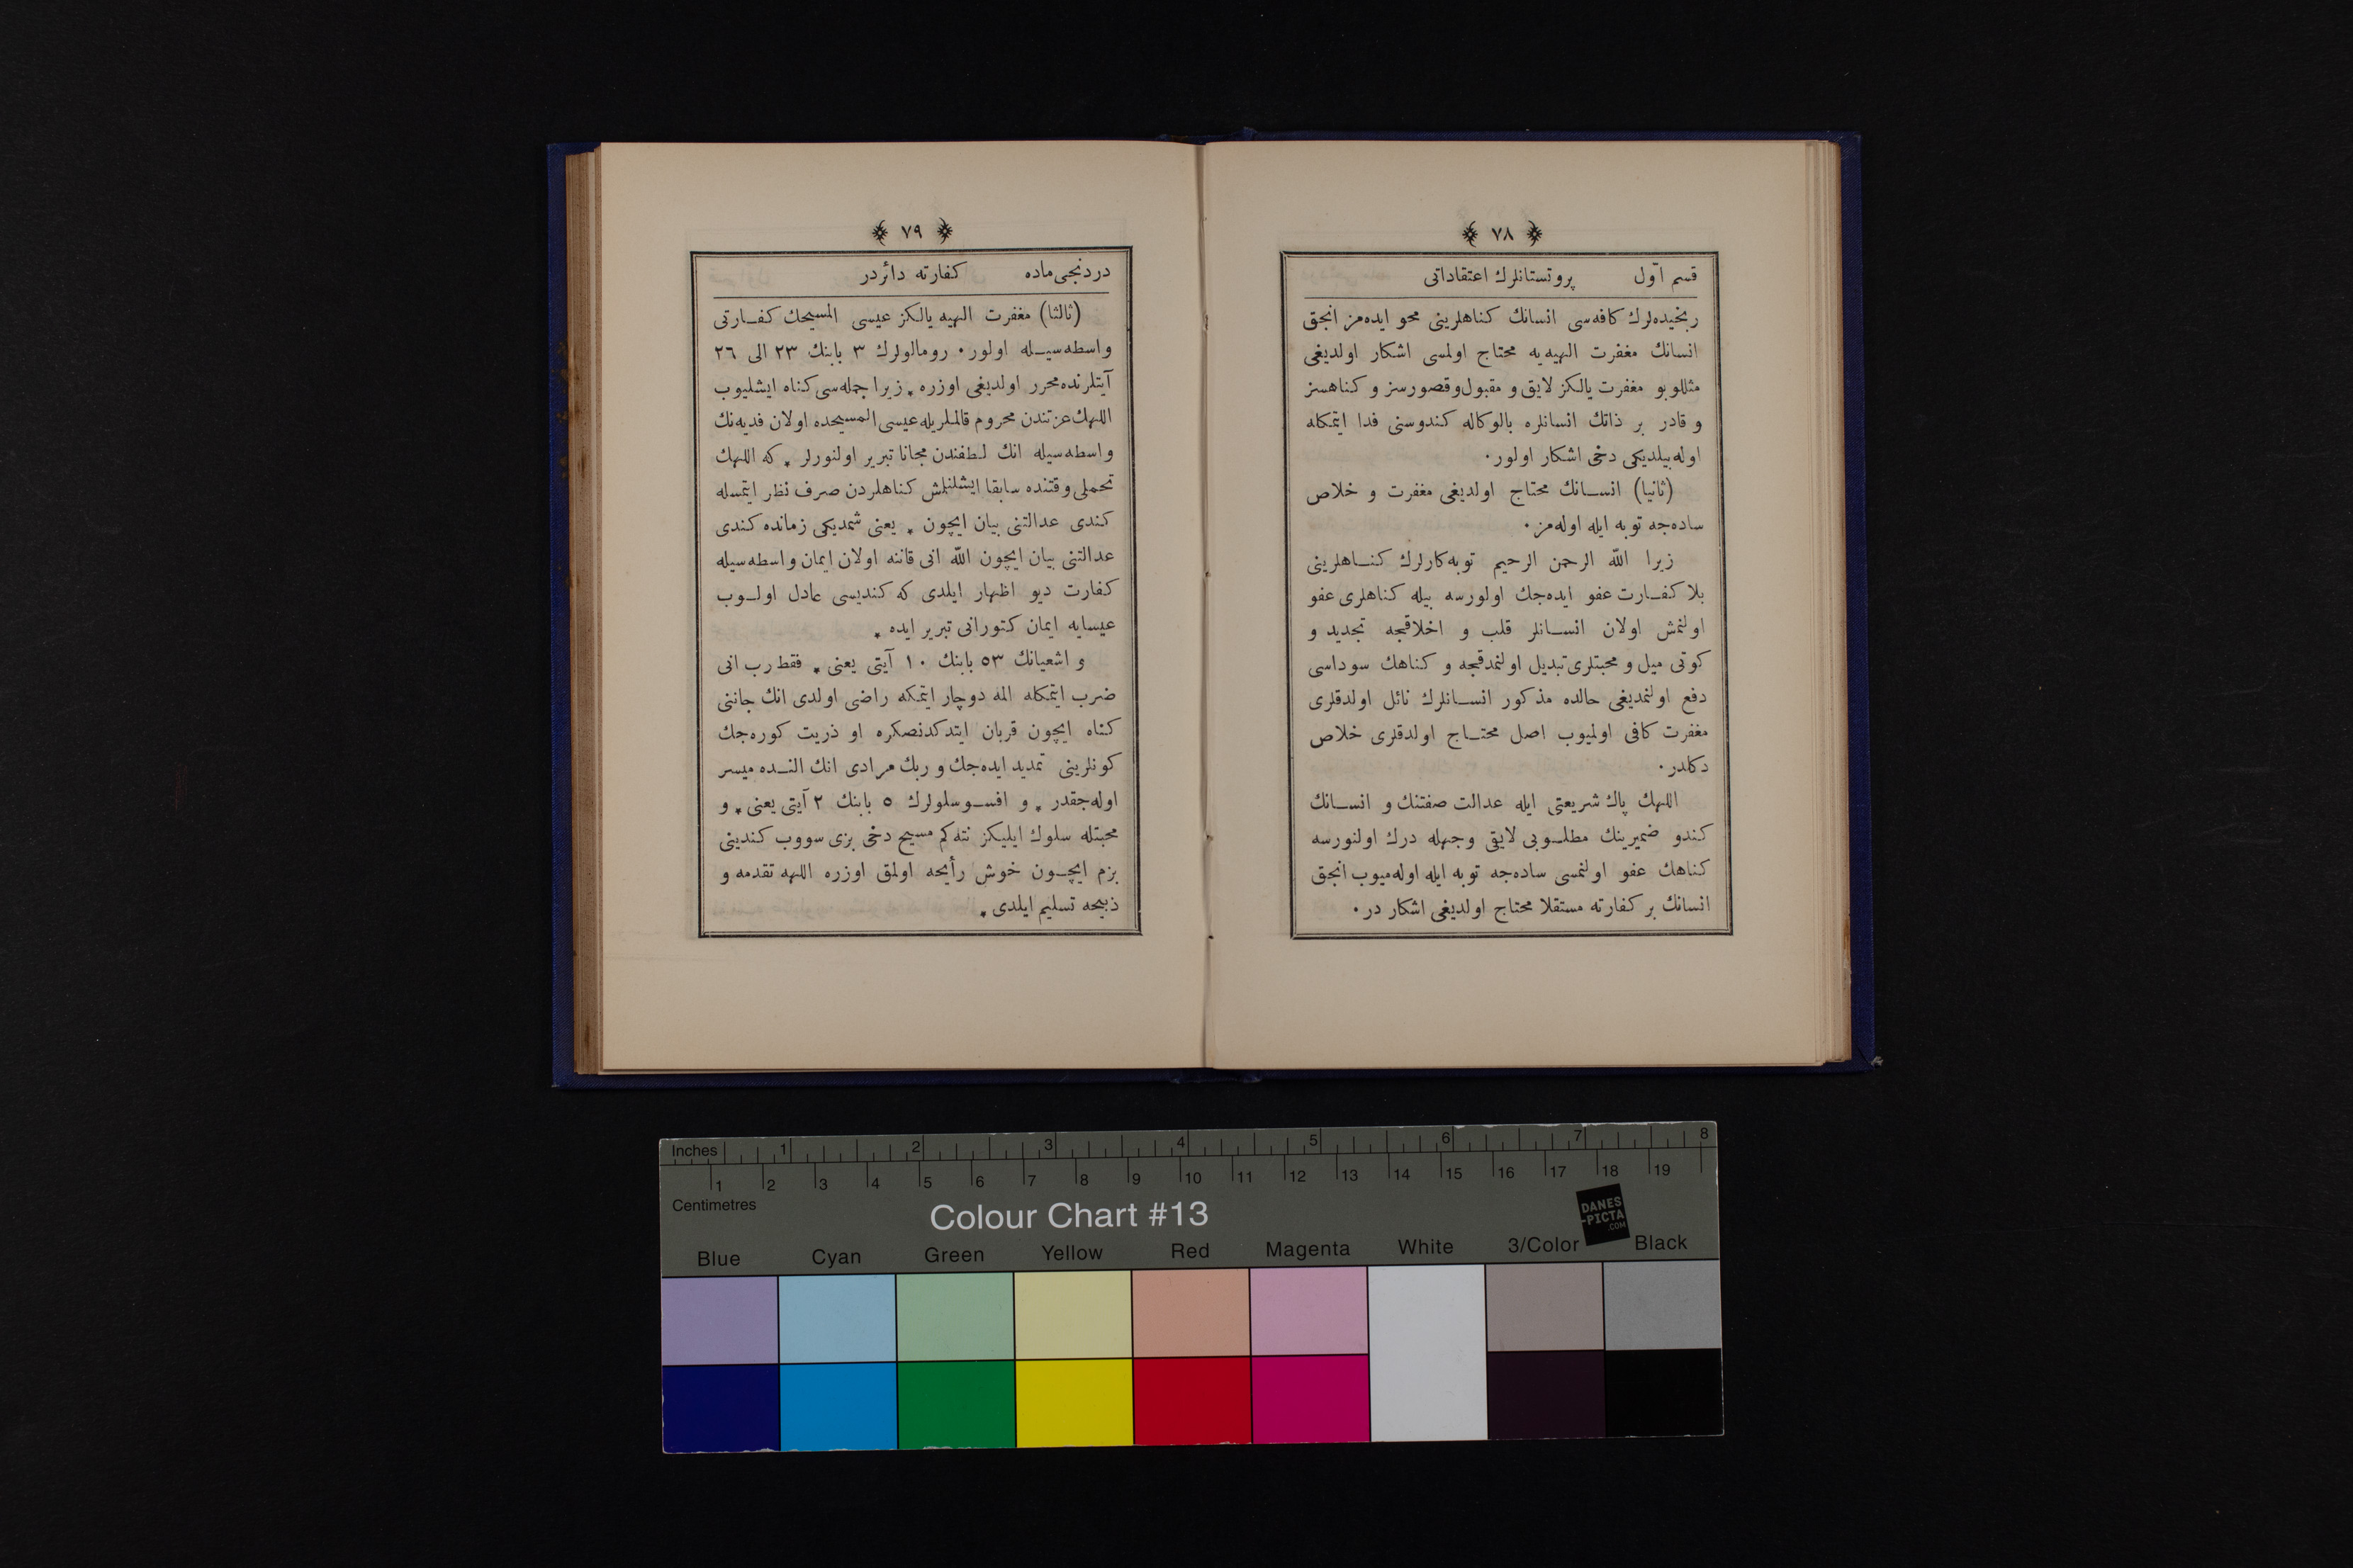 ﴿ ٧٨ ﴾
قسم اوّل پروتستانلرك اعتقاداتی
رنجیده‌لرك كافه‌سی انسانك كناهلرینی محو ایده‌مز انجق
انسانك مغفرت الهیه‌یه محتاج اولمسی اشكار اولدیغی
مثللو بو مغفرت یالكز لایق و مقبول و قصورسز و كناهسز
و قادر بر ذاتك انسانلره بالوكاله كندوسنی فدا ایتمكله
اوله‌بیلدیكی دخی اشكار اولور۰
(ثانیا) انسانك محتاج اولدیغی مغفرت و خلاص
ساده‌جه توبه ایله اوله‌مز۰
زیرا اللّٰه الرحمن الرحیم توبه‌كارلرك كناهلرینی
بلا كفارت عفو ایده‌جك اولورسه بیله كناهلری عفو
اولنمش اولان انسانلر قلب و اخلاقجه تجدید و
كوتی میل و محبتلری تبدیل اولنمدقجه و كناهك سوداسی
دفع اولنمدیغی حالده مذكور انسانلرك نائل اولدقلری
مغفرت كافی اولمیوب اصل محتاج اولدقلری خلاص
دكلدر۰
اللهك پاك شریعتی ایله عدالت صفتنك و انسانك
كندو ضمیرینك مطلوبی لایقی وجهله درك اولنورسه
كناهك عفو اولنمسی ساده‌جه توبه ایله اوله‌میوب انجق
انسانك بر كفارته مستقلا محتاج اولدیغی اشكار در۰
﴿ ٧٩ ﴾
دردنجی ماده كفارته دائردر
(ثالثا) مغفرت الهیه یالكز عیسی المسیحك كفارتی
واسطه‌سیله اولور۰ رومالولرك ٣ بابنك ٢٣ الی ٢٦
آیتلرنده محرر اولدیغی اوزره * زیرا جمله‌سی كناه ایشلیوب
اللهك عزتندن محروم قالملریله عیسی المسیحده اولان فدیه‌نك
واسطه‌سیله انك لطفندن مجانا تبریر اولنورلر * كه اللهك
تحملی وقتنده سابقا ایشلنلمش كناهلردن صرف نظر ایتمسله
كندی عدالتنی بیان ایچون * یعنی شمدیكی زمانده كندی
عدالتنی بیان ایچون اللّٰه انی قاننه اولان ایمان واسطه‌سیله
كفارت دیو اظهار ایلدی كه كندیسی عادل اولوب
عیسایه ایمان كتورانی تبریر ایده *
و اشعیانك ٥٣ بابنك ١٠ آیتی یعنی * فقط رب انی
ضرب ایتمكله المه دوچار ایتمكه راضی اولدی انك جاننی
كناه ایچون قربان ایتدكدنصكره او ذریت كوره‌جك
كونلرینی تمدید ایده‌جك و ربك مرادی انك النده میسر
اوله‌جقدر * و افسوسلولرك ٥ بابنك ٢ آیتی یعنی * و
محبتله سلوك ایلیكز نته‌كم مسیح دخی بزی سووب كندینی
بزم ایچون خوش رأیحه اولمق اوزره اللهه تقدمه و
ذبیحه تسلیم ایلدی *
Inches 1 2 3 4 5 6 7 8
1 2 3 4 5 6 7 8 9 10 11 12 13 14 15 16 17 18 19
Centimetres
Colour Chart #13
DANES
-PICTA
.COM
Blue Cyan Green Yellow Red Magenta White 3/Color Black